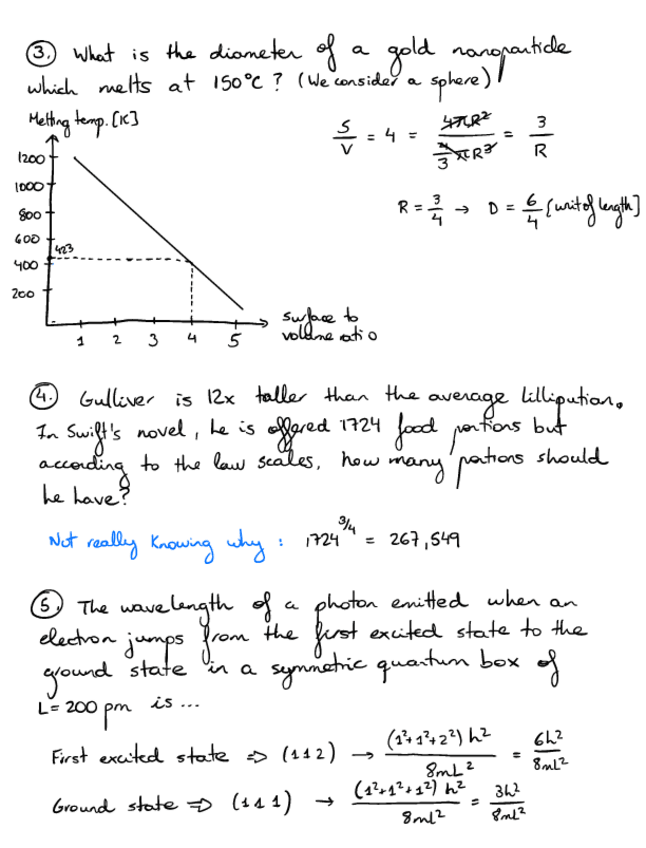 3. What is the diameter of a gold nanoparticle
which melts at 150°C? (We consider a sphere)
Melting temp. [K]
1200
1000
800
600
423
400
200
1 2 3 4 5
Surface to
volume ratio
S/V = 4 = 4πR²/(4/3 πR³) = 3/R
R = 3/4 → D = 6/4 [unit of length]
4. Gulliver is 12x taller than the average lilliputian.
In Swift's novel, he is offered 1724 food portions but
according to the law scales, how many portions should
he have?
Not really knowing why : 1724^3/4 = 267,549
5. The wavelength of a photon emitted when an
electron jumps from the first excited state to the
ground state in a symmetric quantum box of
L= 200 pm is ...
First excited state ⇒ (112) → (1²+1²+2²) h²/8mL² = 6h²/8mL²
Ground state ⇒ (111) → (1²+1²+1²) h²/8mL² = 3h²/8mL²